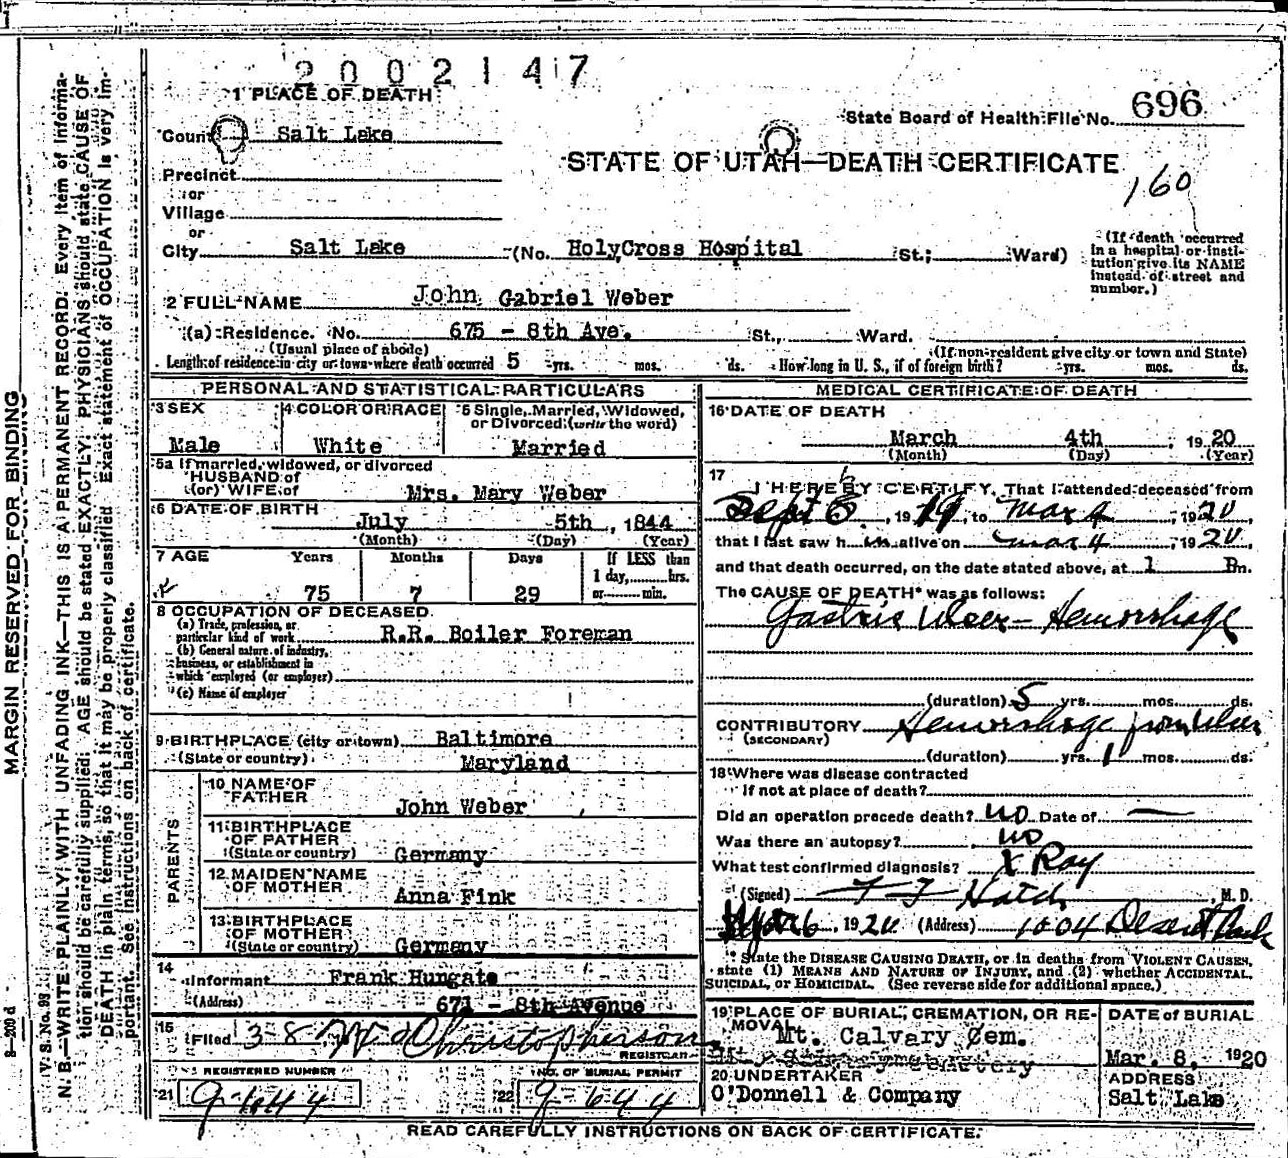 2002147
1 PLACE OF DEATH
State Board of Health File No. 696
County Salt Lake
STATE OF UTAH—DEATH CERTIFICATE
160
Precinct
or
Village
or
City Salt Lake (No. HolyCross Hospital St.; Ward)
(If death occurred in a hospital or institution give its NAME instead of street and number.)
2 FULL NAME John Gabriel Weber
(a) Residence. No. 675 - 8th Ave. St., Ward.
(Usual place of abode) (If non-resident give city or town and State)
Length of residence in city or town where death occurred 5 yrs. mos. ds. How long in U. S., if of foreign birth? yrs. mos. ds.
PERSONAL AND STATISTICAL PARTICULARS
3 SEX 4 COLOR OR RACE 5 Single, Married, Widowed, or Divorced (write the word)
Male White Married
5a If married, widowed, or divorced
HUSBAND of
(or) WIFE of Mrs. Mary Weber
6 DATE OF BIRTH July 5th, 1844
(Month) (Day) (Year)
7 AGE Years Months Days If LESS than
1 day, hrs.
75 7 29 or min.
8 OCCUPATION OF DECEASED
(a) Trade, profession, or particular kind of work R.R. Boiler Foreman
(b) General nature of industry, business, or establishment in which employed (or employer)
(c) Name of employer
9 BIRTHPLACE (city or town) Baltimore
(State or country) Maryland
PARENTS
10 NAME OF FATHER John Weber
11 BIRTHPLACE OF FATHER
(State or country) Germany
12 MAIDEN NAME OF MOTHER Anna Fink
13 BIRTHPLACE OF MOTHER
(State or country) Germany
14 Informant Frank Hungate
(Address) 671 - 8th Avenue
15 Filed 3-8 Christopherson
REGISTRAR
REGISTERED NUMBER NO. OF BURIAL PERMIT
21 22
MEDICAL CERTIFICATE OF DEATH
16 DATE OF DEATH
March 4th, 1920
(Month) (Day) (Year)
17 I HEREBY CERTIFY, That I attended deceased from
Sept 6, 1919, to Mar 4, 1920
that I last saw him alive on Mar 4, 1920
and that death occurred, on the date stated above, at 1 P m.
The CAUSE OF DEATH* was as follows:
Gastric Ulcer - Hemorrhage
(duration) 5 yrs. mos. ds.
CONTRIBUTORY Hemorrhage from Ulcer
(SECONDARY)
(duration) yrs. 1 mos. ds.
18 Where was disease contracted
If not at place of death?
Did an operation precede death? no Date of —
Was there an autopsy? no
What test confirmed diagnosis? X Ray
(Signed) F J Hatch M. D.
Mar 6, 1920 (Address) 1004 Deseret Bank
* State the DISEASE CAUSING DEATH, or in deaths from VIOLENT CAUSES, state (1) MEANS AND NATURE OF INJURY, and (2) whether ACCIDENTAL, SUICIDAL, or HOMICIDAL. (See reverse side for additional space.)
19 PLACE OF BURIAL, CREMATION, OR REMOVAL DATE OF BURIAL
Mt. Calvary Cem. Mar. 8, 1920
20 UNDERTAKER ADDRESS
O'Donnell & Company Salt Lake
READ CAREFULLY INSTRUCTIONS ON BACK OF CERTIFICATE.
MARGIN RESERVED FOR BINDING
V. S. No. 98
N. B.—WRITE PLAINLY, WITH UNFADING INK—THIS IS A PERMANENT RECORD. Every item of information should be carefully supplied. AGE should be stated EXACTLY. PHYSICIANS should state CAUSE OF DEATH in plain terms, so that it may be properly classified. Exact statement of OCCUPATION is very important. See instructions on back of certificate.